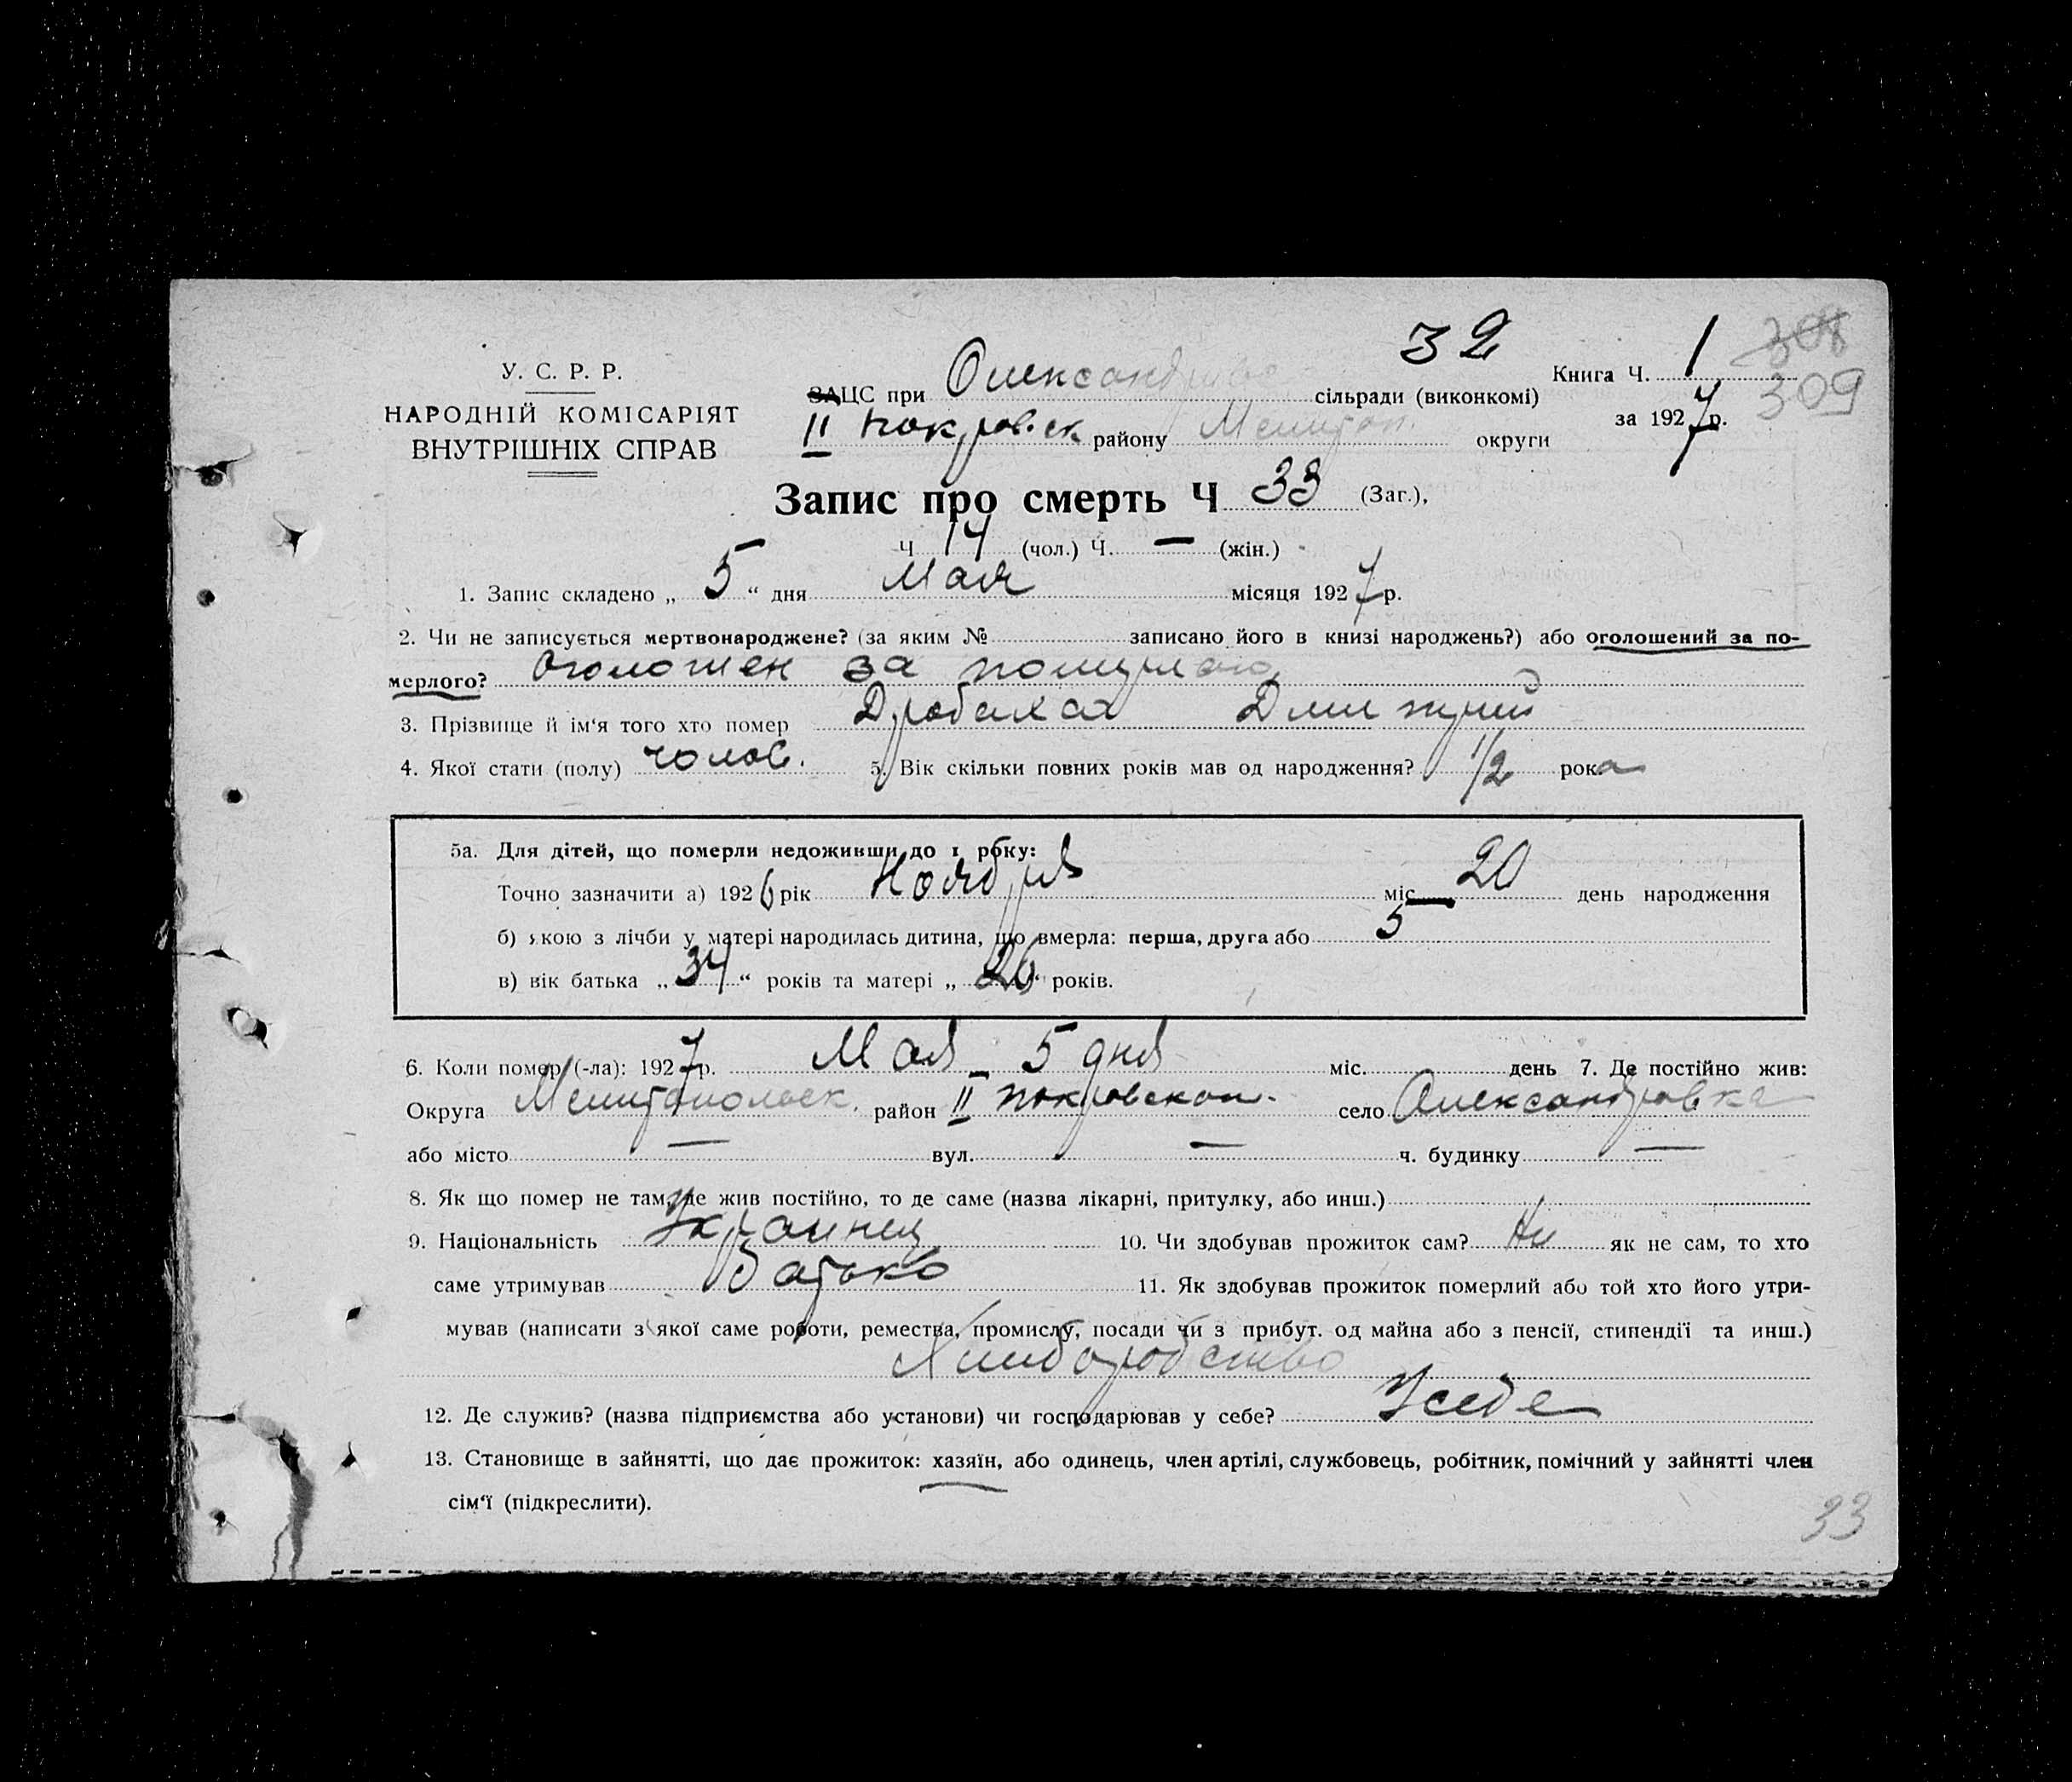 32
У. С. Р. Р.
НАРОДНІЙ КОМІСАРІЯТ
ВНУТРІШНІХ СПРАВ
ЗАЦС при Олександрівс сільради (виконкомі)
II Покровск району Мелитоп. округи
Книга Ч. 1
308
309
за 1927 р.
Запис про смерть Ч 33 (Заг.),
Ч 14 (чол.) Ч. — (жін.)
1. Запис складено „ 5 “ дня Мая місяця 1927 р.
2. Чи не записується мертвонароджене? (за яким № записано його в книзі народжень?) або оголошений за по-
мерлого? Оголошен за помершого
3. Прізвище й ім‘я того хто помер Дробаха Дмитрий
4. Якої стати (полу) чолов. 5. Вік скільки повних років мав од народження? 1/2 рока
5а. Для дітей, що померли недоживши до 1 року:
Точно зазначити а) 1926 рік Ноября міс. 20 день народження
б) якою з лічби у матері народилась дитина, що вмерла: перша, друга або 5
в) вік батька „ 34 “ років та матері „ 26 “ років.
6. Коли помер (-ла): 1927 р. Мая 5 дня міс. день 7. Де постійно жив:
Округа Мелитопольск. район II Покровском. село Александровка
або місто — вул. — ч. будинку —
8. Як що помер не там, де жив постійно, то де саме (назва лікарні, притулку, або инш.)
9. Національність Украинец 10. Чи здобував прожиток сам? Ни як не сам, то хто
саме утримував Батько 11. Як здобував прожиток померлий або той хто його утри-
мував (написати з якої саме роботи, ремества, промислу, посади чи з прибут. од майна або з пенсії, стипендії та инш.)
Хлиборобство
12. Де служив? (назва підприємства або установи) чи господарював у себе? У себе
13. Становище в зайнятті, що дає прожиток: хазяїн, або одинець, член артілі, службовець, робітник, помічний у зайнятті член
сім‘ї (підкреслити).
33